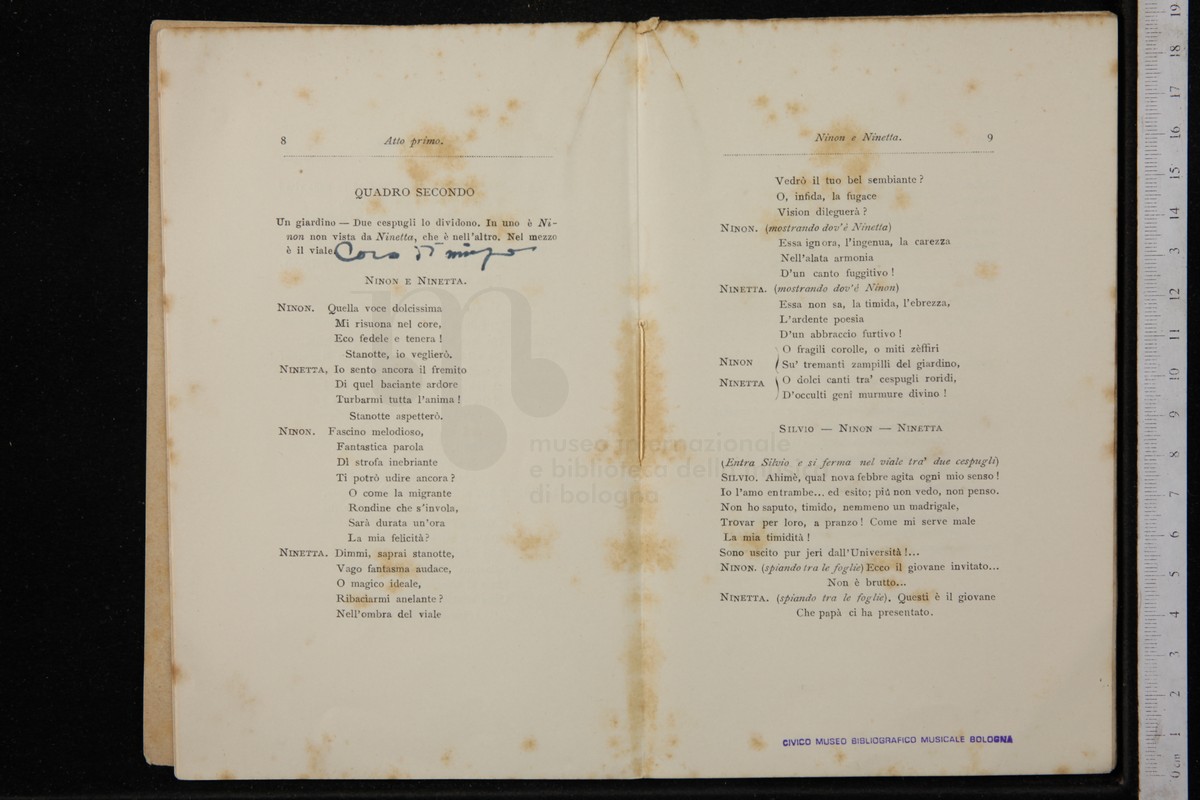 8
Atto primo.
QUADRO SECONDO
Un giardino — Due cespugli lo dividono. In uno è Ni-
non non vista da Ninetta, che è nell'altro. Nel mezzo
è il viale
NINON E NINETTA.
NINON. Quella voce dolcissima
Mi risuona nel core,
Eco fedele e tenera !
Stanotte, io veglierò.
NINETTA. Io sento ancora il fremito
Di quel baciante ardore
Turbarmi tutta l'anima !
Stanotte aspetterò.
NINON. Fascino melodioso,
Fantastica parola
Di strofa inebriante
Ti potrò udire ancora ?
O come la migrante
Rondine che s'invola,
Sarà durata un'ora
La mia felicità?
NINETTA. Dimmi, saprai stanotte,
Vago fantasma audace,
O magico ideale,
Ribaciarmi anelante ?
Nell'ombra del viale
Ninon e Ninetta.
9
Vedrò il tuo bel sembiante ?
O, infida, la fugace
Vision dileguerà ?
NINON. (mostrando dov'è Ninetta)
Essa ignora, l'ingenua, la carezza
Nell'alata armonia
D'un canto fuggitivo !
NINETTA. (mostrando dov'è Ninon)
Essa non sa, la timida, l'ebrezza,
L'ardente poesia
D'un abbraccio furtivo !
NINON
NINETTA
O fragili corolle, o miti zèffiri
Su' tremanti zampilli del giardino,
O dolci canti tra' cespugli roridi,
D'occulti genî murmure divino !
SILVIO — NINON — NINETTA
(Entra Silvio e si ferma nel viale tra' due cespugli)
SILVIO. Ahimè, qual nova febbre agita ogni mio senso !
Io l'amo entrambe... ed esito; più non vedo, non penso.
Non ho saputo, timido, nemmeno un madrigale,
Trovar per loro, a pranzo ! Come mi serve male
La mia timidità !
Sono uscito pur jeri dall'Università !...
NINON. (spiando tra le foglie) Ecco il giovane invitato...
Non è brutto...
NINETTA. (spiando tra le foglie). Questi è il giovane
Che papà ci ha presentato.
CIVICO MUSEO BIBLIOGRAFICO MUSICALE BOLOGNA
museo internazionale
e biblioteca della musica
di bologna
0 cm 1 2 3 4 5 6 7 8 9 10 11 12 13 14 15 16 17 18 19